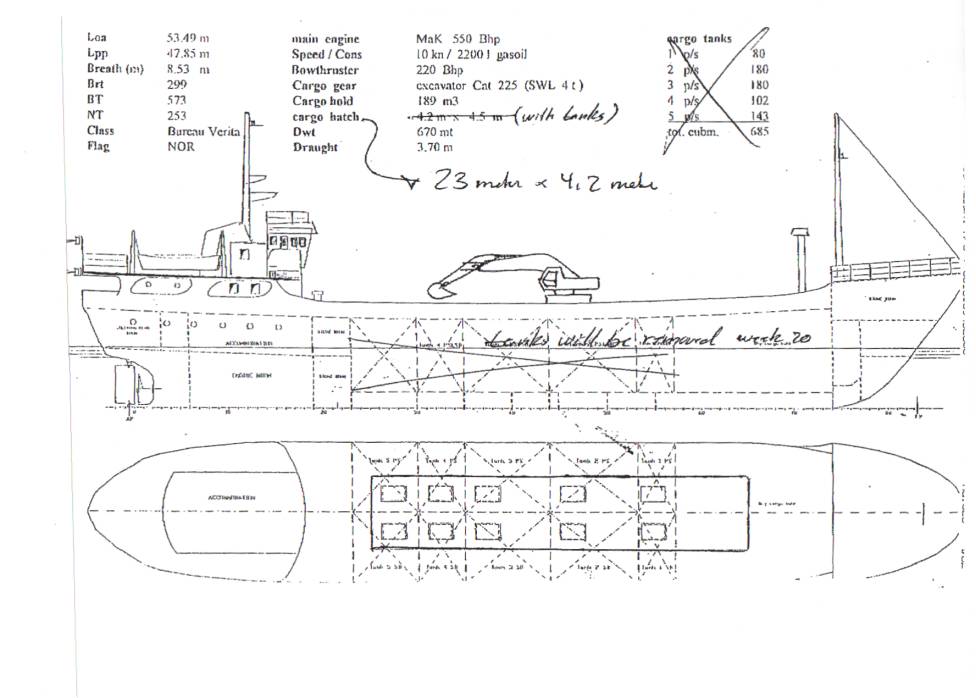 Loa 53.49 m main engine MaK 550 Bhp cargo tanks
Lpp 47.85 m Speed / Cons 10 kn / 2200 l gasoil 1 p/s 80
Breath (m) 8.53 m Bowthruster 220 Bhp 2 p/s 180
Brt 299 Cargo gear excavator Cat 225 (SWL 4 t) 3 p/s 180
BT 573 Cargo hold 189 m3 4 p/s 102
NT 253 cargo hatch 4.2 m x 4.5 m (with tanks) 5 p/s 143
Class Bureau Verita Dwt 670 mt tot. cubm. 685
Flag NOR Draught 3.70 m
23 meter x 4,2 meter
tanks will be removed week 20
ACCOMMODATION
ENGINE ROOM
10 20 30 40 50 60 70 80
Tank 5 PS Tank 4 PS Tank 3 PS Tank 2 PS Tank 1 PS
ACCOMMODATION
Dry cargo hold
Tank 5 SB Tank 4 SB Tank 3 SB Tank 2 SB Tank 1 SB